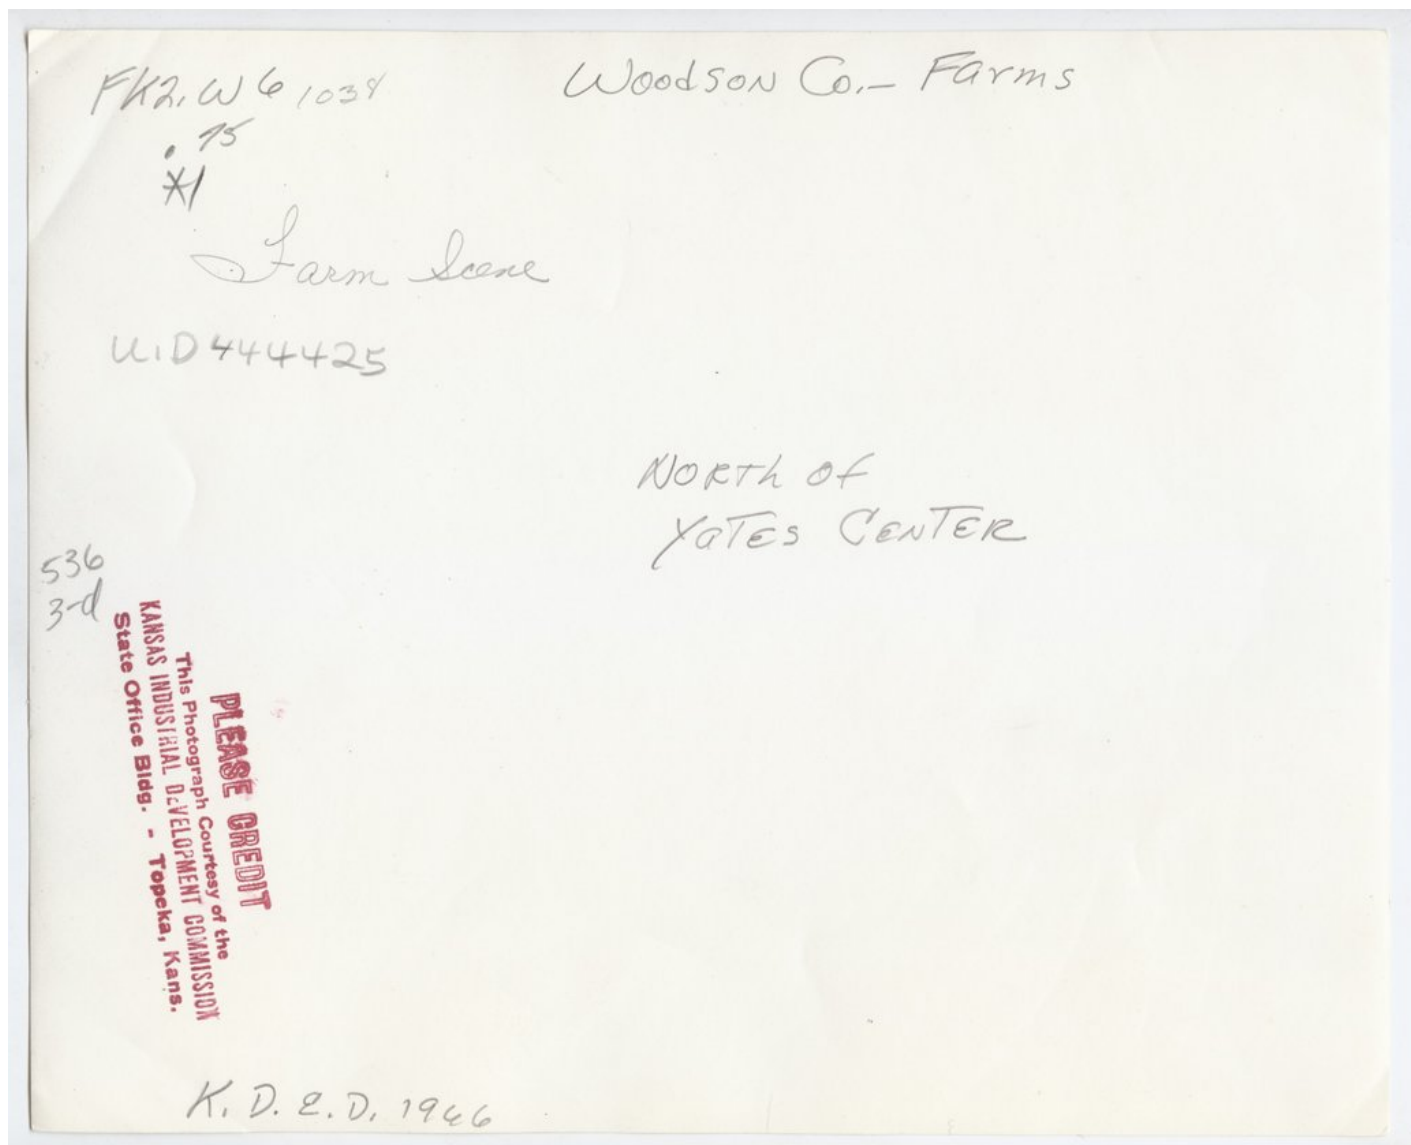 FK2.W6 1038 Woodson Co.— Farms
.75
*1
Farm Scene
U.I.D 444425
NORTH OF
YATES CENTER
536
3-d
PLEASE CREDIT
This Photograph Courtesy of the
KANSAS INDUSTRIAL DEVELOPMENT COMMISSION
State Office Bldg. - Topeka, Kans.
K. D. E. D. 1966